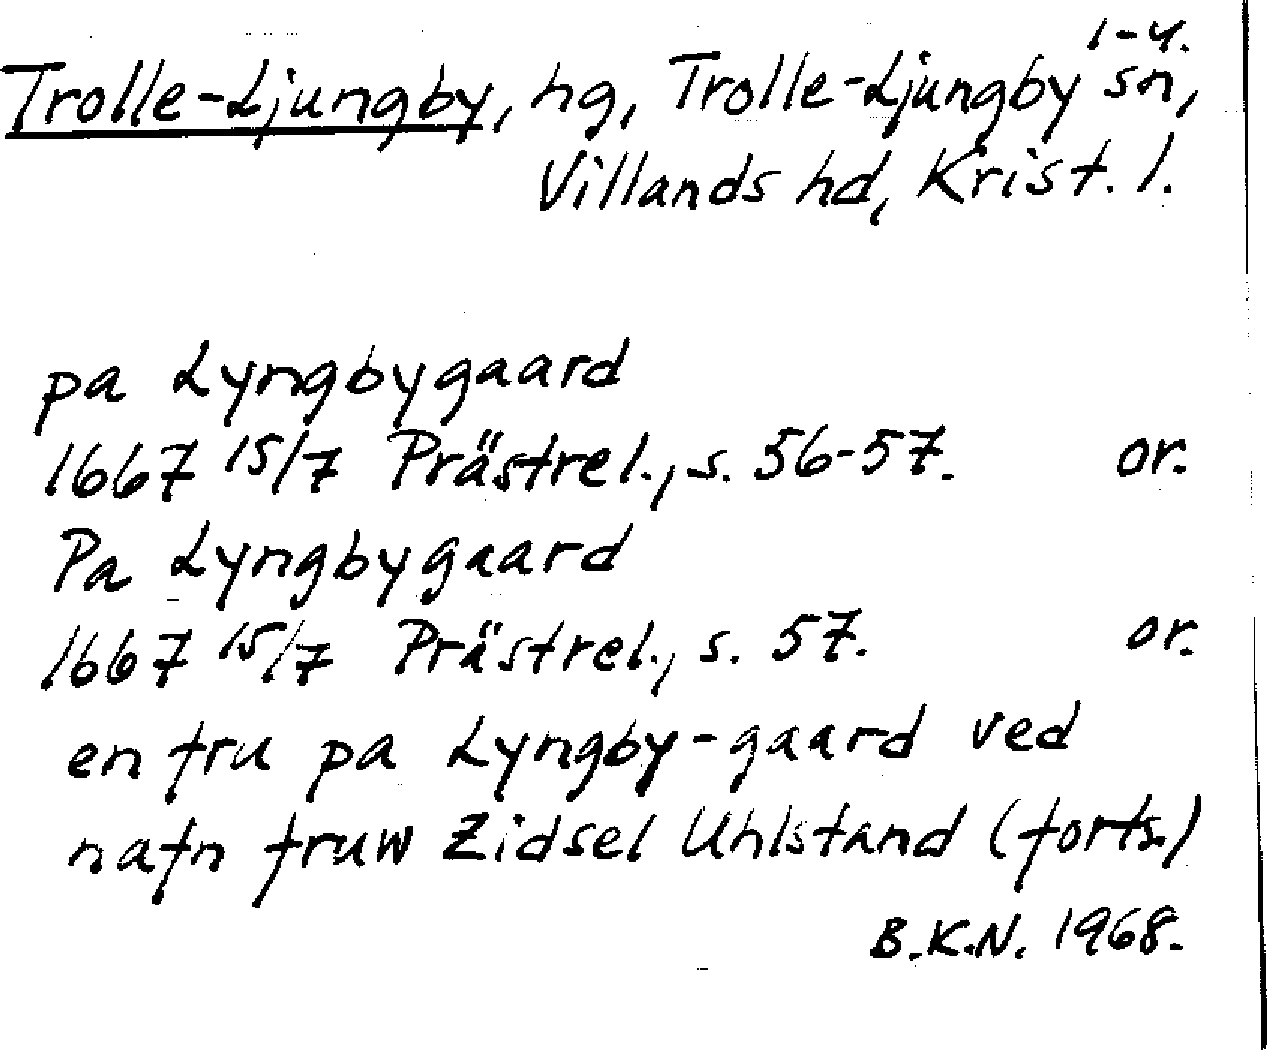 1-4.
Trolle-Ljungby, hg, Trolle-Ljungby sn,
Villands hd, Krist. l.
pa Lyngbygaard
1667 15/7 Prästrel., s. 56-57. or.
Pa Lyngbygaard
1667 15/7 Prästrel., s. 57. or.
en fru pa Lyngby-gaard ved
nafn fruw Zidsel Uhlstand (forts.)
B.K.N. 1968.